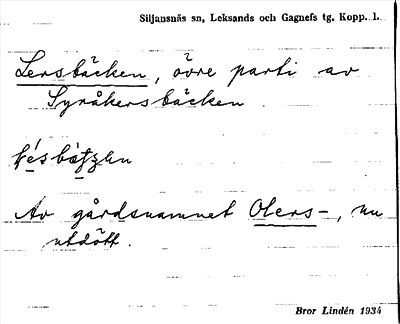 Siljansnäs sn, Leksands och Gagnefs tg, Kopp. l.
Lersbäcken, övre parti av
Syråkersbäcken
Av gårdsnamnet Olers-, nu
utdött.
Bror Lindén 1934